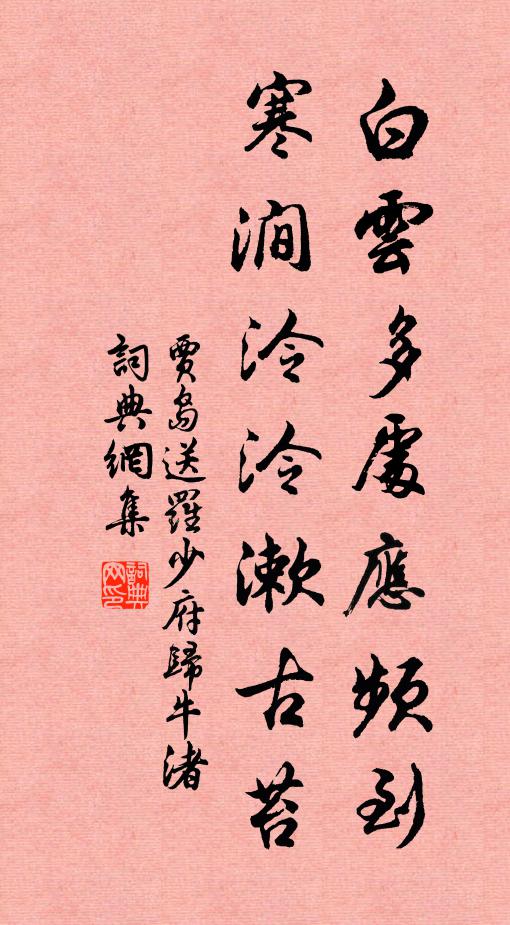 白雲多處應頻到
寒澗泠泠漱古苔
賈島送羅少府歸牛渚
詞典網集
詞典網印